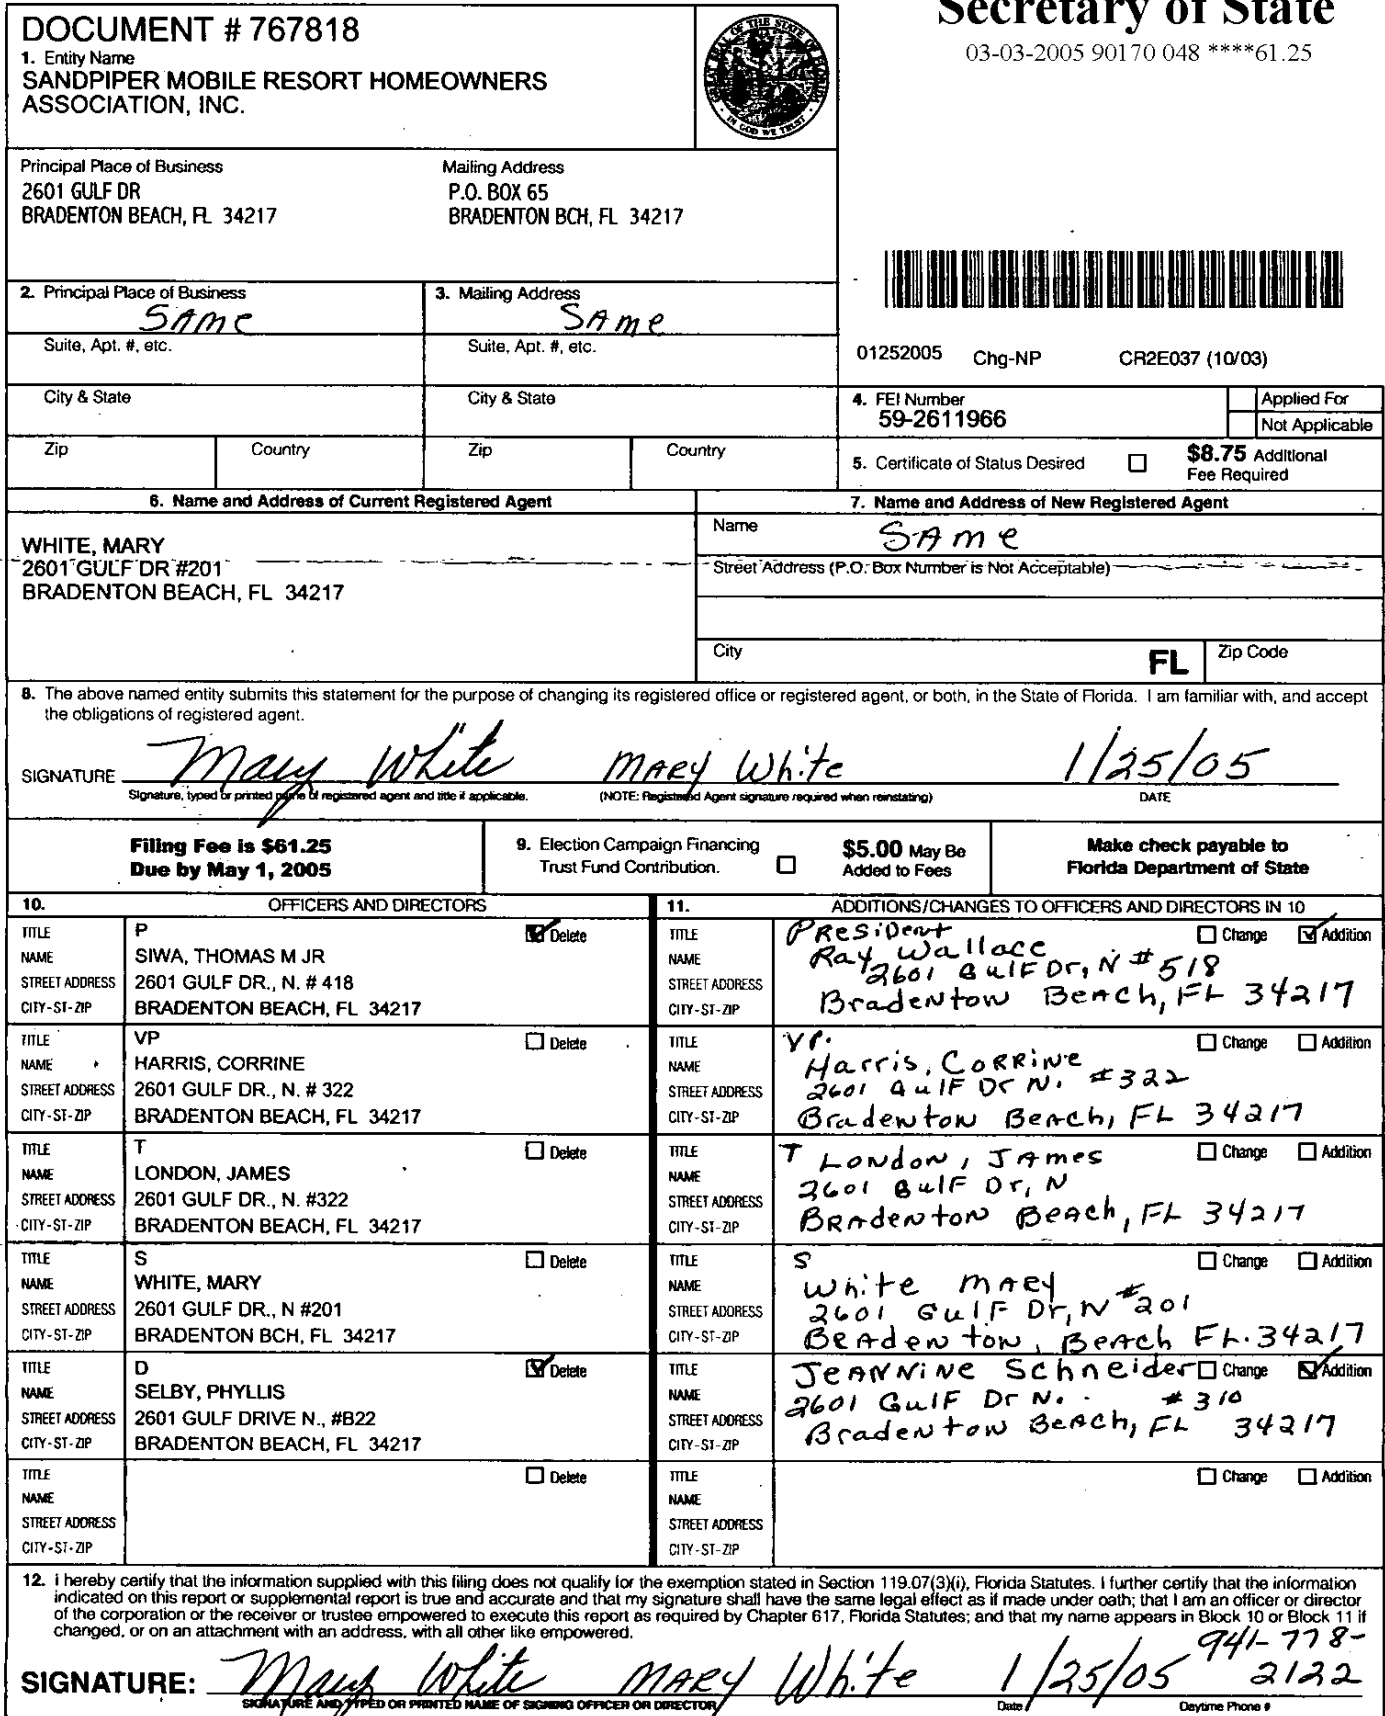 Secretary of State
03-03-2005 90170 048 ****61.25
DOCUMENT # 767818
1. Entity Name
SANDPIPER MOBILE RESORT HOMEOWNERS
ASSOCIATION, INC.
GREAT SEAL OF THE STATE OF FLORIDA
IN GOD WE TRUST
Principal Place of Business
2601 GULF DR
BRADENTON BEACH, FL 34217
Mailing Address
P.O. BOX 65
BRADENTON BCH, FL 34217
2. Principal Place of Business
SAme
3. Mailing Address
SAme
Suite, Apt. #, etc.
Suite, Apt. #, etc.
01252005 Chg-NP CR2E037 (10/03)
City & State
City & State
4. FEI Number
59-2611966
Applied For
Not Applicable
Zip Country Zip Country
5. Certificate of Status Desired
$8.75 Additional
Fee Required
6. Name and Address of Current Registered Agent
WHITE, MARY
2601 GULF DR #201
BRADENTON BEACH, FL 34217
7. Name and Address of New Registered Agent
Name SAme
Street Address (P.O. Box Number is Not Acceptable)
City FL Zip Code
8. The above named entity submits this statement for the purpose of changing its registered office or registered agent, or both, in the State of Florida. I am familiar with, and accept
the obligations of registered agent.
SIGNATURE Mary White MARY White 1/25/05
Signature, typed or printed name of registered agent and title if applicable. (NOTE: Registered Agent signature required when reinstating) DATE
Filing Fee is $61.25
Due by May 1, 2005
9. Election Campaign Financing
Trust Fund Contribution.
$5.00 May Be
Added to Fees
Make check payable to
Florida Department of State
10. OFFICERS AND DIRECTORS
11. ADDITIONS/CHANGES TO OFFICERS AND DIRECTORS IN 10
TITLE P Delete
NAME SIWA, THOMAS M JR
STREET ADDRESS 2601 GULF DR., N. # 418
CITY-ST-ZIP BRADENTON BEACH, FL 34217
TITLE PResident Change Addition
NAME Ray Wallace
STREET ADDRESS 2601 GulF Dr, N # 518
CITY-ST-ZIP BradeNtoN BeAch, FL 34217
TITLE VP Delete
NAME HARRIS, CORRINE
STREET ADDRESS 2601 GULF DR., N. # 322
CITY-ST-ZIP BRADENTON BEACH, FL 34217
TITLE VP. Change Addition
NAME Harris, CoRRiNe
STREET ADDRESS 2601 GulF Dr N. #322
CITY-ST-ZIP BradeNtoN BeAch, FL 34217
TITLE T Delete
NAME LONDON, JAMES
STREET ADDRESS 2601 GULF DR., N. #322
CITY-ST-ZIP BRADENTON BEACH, FL 34217
TITLE T LoNdoN, JAmes Change Addition
NAME
STREET ADDRESS 2601 GulF Dr, N
CITY-ST-ZIP BRAdeNtoN BeAch, FL 34217
TITLE S Delete
NAME WHITE, MARY
STREET ADDRESS 2601 GULF DR., N #201
CITY-ST-ZIP BRADENTON BCH, FL 34217
TITLE S Change Addition
NAME White MARY
STREET ADDRESS 2601 GulF Dr, N #201
CITY-ST-ZIP BRAdeNtoN, BeAch FL. 34217
TITLE D Delete
NAME SELBY, PHYLLIS
STREET ADDRESS 2601 GULF DRIVE N., #B22
CITY-ST-ZIP BRADENTON BEACH, FL 34217
TITLE JeANNiNe Schneider Change Addition
NAME 2601 GulF Dr N. #310
STREET ADDRESS BradeNtoN BeAch, FL 34217
CITY-ST-ZIP
TITLE Delete
NAME
STREET ADDRESS
CITY-ST-ZIP
TITLE Change Addition
NAME
STREET ADDRESS
CITY-ST-ZIP
12. I hereby certify that the information supplied with this filing does not qualify for the exemption stated in Section 119.07(3)(i), Florida Statutes. I further certify that the information
indicated on this report or supplemental report is true and accurate and that my signature shall have the same legal effect as if made under oath; that I am an officer or director
of the corporation or the receiver or trustee empowered to execute this report as required by Chapter 617, Florida Statutes; and that my name appears in Block 10 or Block 11 if
changed, or on an attachment with an address, with all other like empowered.
941-778-
SIGNATURE: Mary White MARY White 1/25/05 2122
SIGNATURE AND TYPED OR PRINTED NAME OF SIGNING OFFICER OR DIRECTOR Date Daytime Phone #